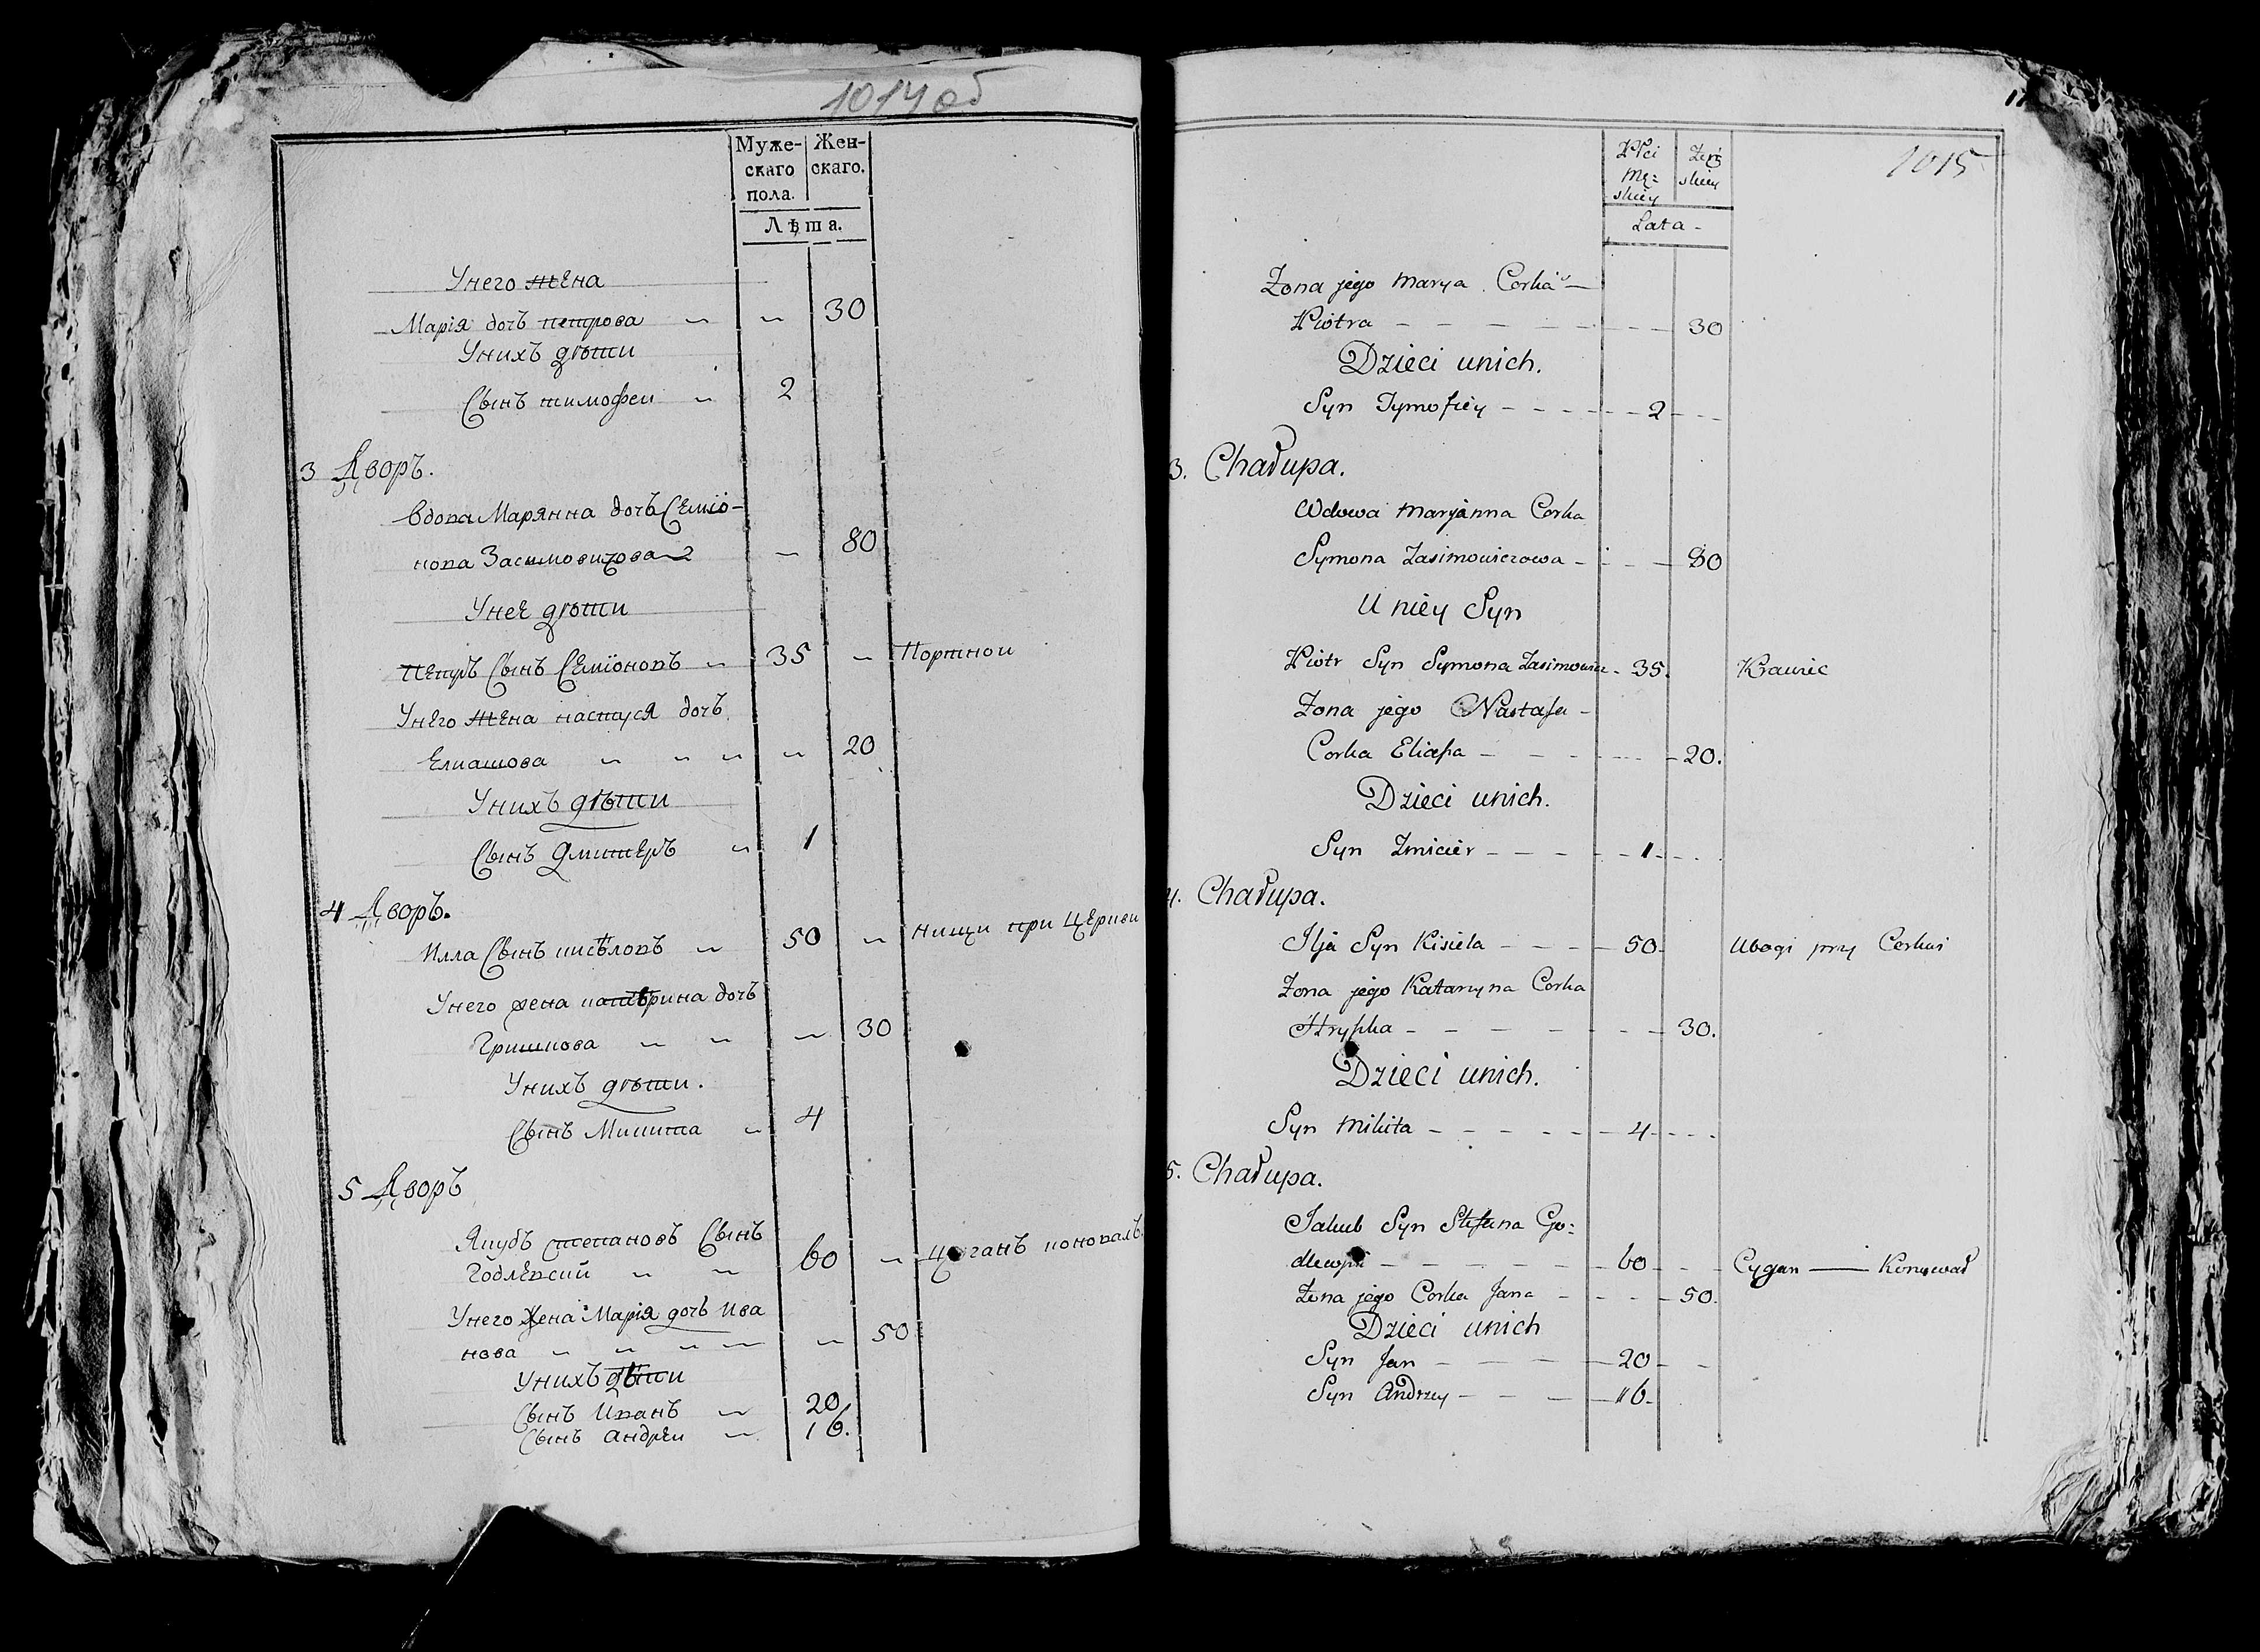 1014 об
Муже-
скаго
пола.
Жен-
скаго.
Лѣта.
Унего жена
Марія дочъ петрова 30
Унихъ дѣти
Сынъ тимофеи 2
3 Дворъ.
вдова Марянна дочъ Семіо-
нова Засимовичова 80
Унее дѣти
Петръ Сынъ Семіоновъ 35 Портнои
Унего жена настуся дочъ
Елиашова 20
Унихъ дѣти
Сынъ Дмитеръ 1
4 Дворъ.
Илла Сынъ кисѣловъ 50 нищи при Церкви
Унего жена катѣрина дочъ
Гришкова 30
Унихъ дѣти.
Сынъ Микита 4
5 Дворъ
Якубъ степановъ Сынъ
Годлевскій 60 Цыганъ коновалъ
Унего жена Марія дочъ Ива
нова 50
Унихъ дѣти
Сынъ Иванъ 20
Сынъ андреи 16.
1015
Płci
Mę=
skiey
Żeń
skiey
Lata -
Zona jego Marya Corka
Piotra 30
Dzieci unich.
Syn Tymofiey 2
3. Chałupa.
Wdowa Maryanna Corka
Symona Zasimowiczowa 80
U niey Syn
Piotr Syn Symona Zasimowicz 35. Krawiec
Zona jego Nastasia
Corka Eliasza 20.
Dzieci unich.
Syn Zmicier 1
4. Chałupa.
Ilja Syn Kisiela 50 Ubogi przy Cerkwi
Zona jego Katarzyna Corka
Hryszka 30.
Dzieci unich.
Syn Mikita 4
5. Chałupa.
Jakub Syn Stefana Go=
dlewski 60 Cygan — Konował
Zona jego Corka Jana 50.
Dzieci unich
Syn Jan 20
Syn Andrzey 16